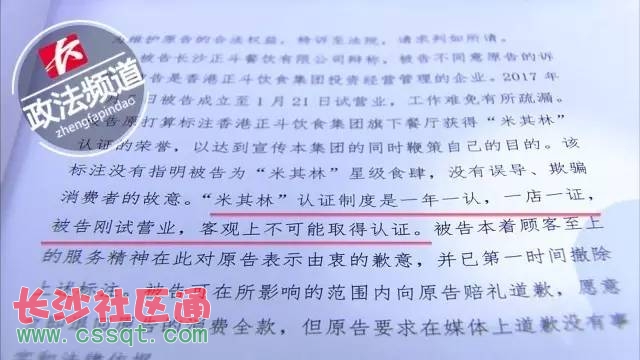 为维护原告的合法权益，特诉至法院，请求判如所请。
被告长沙正斗饮食有限公司辩称，被告不同意原告的诉
告是香港正斗饮食集团投资经营管理的企业。2017 年
日被告成立至 1 月 21 日试营业，工作难免有所疏漏。
告原打算标注香港正斗饮食集团旗下餐厅获得“米其林”
认证的荣誉，以达到宣传本集团的同时鞭策自己的目的。该
标注没有指明被告为“米其林”星级食肆，没有误导、欺骗
消费者的故意。“米其林”认证制度是一年一认，一店一证，
被告刚试营业，客观上不可能取得认证。被告本着顾客至上
的服务精神在此对原告表示由衷的歉意，并已第一时间撤除
上述标注，被告可在所影响的范围内向原告赔礼道歉，愿意
费全款，但原告要求在媒体上道歉没有事
政法频道
zhengfapindao
长沙社区通
www.cssqt.com